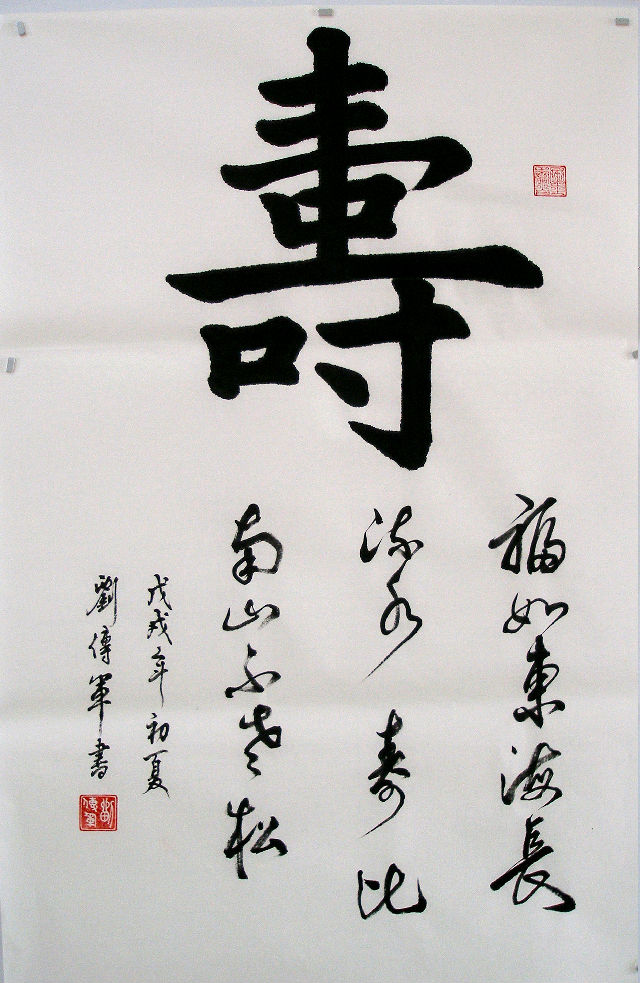 壽
福如東海長
流水 寿比
南山不老松
戊戌年初夏
劉傳軍書
劉傳軍